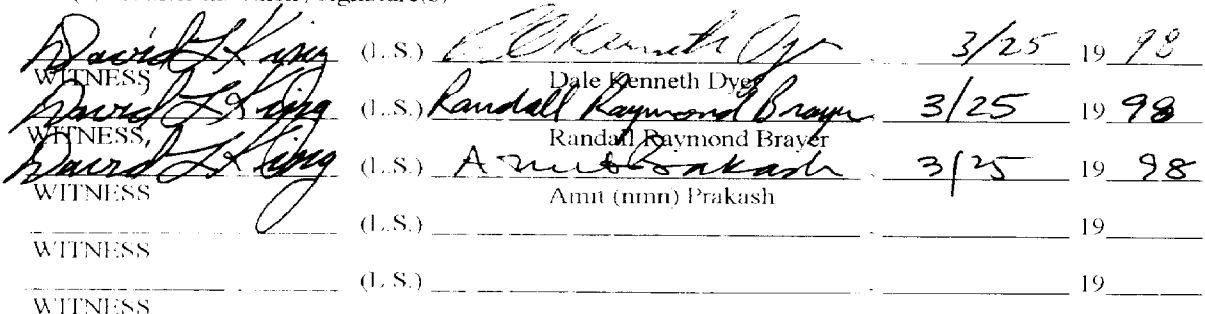 David L King (L.S.) Kenneth Dyer 3/25 19 98
WITNESS Dale Kenneth Dyer
David L King (L.S.) Randall Raymond Brayer 3/25 19 98
WITNESS, Randall Raymond Brayer
David L King (L.S.) Amit Prakash 3/25 19 98
WITNESS Amit (nmn) Prakash
(L.S.) 19
WITNESS
(L.S.) 19
WITNESS